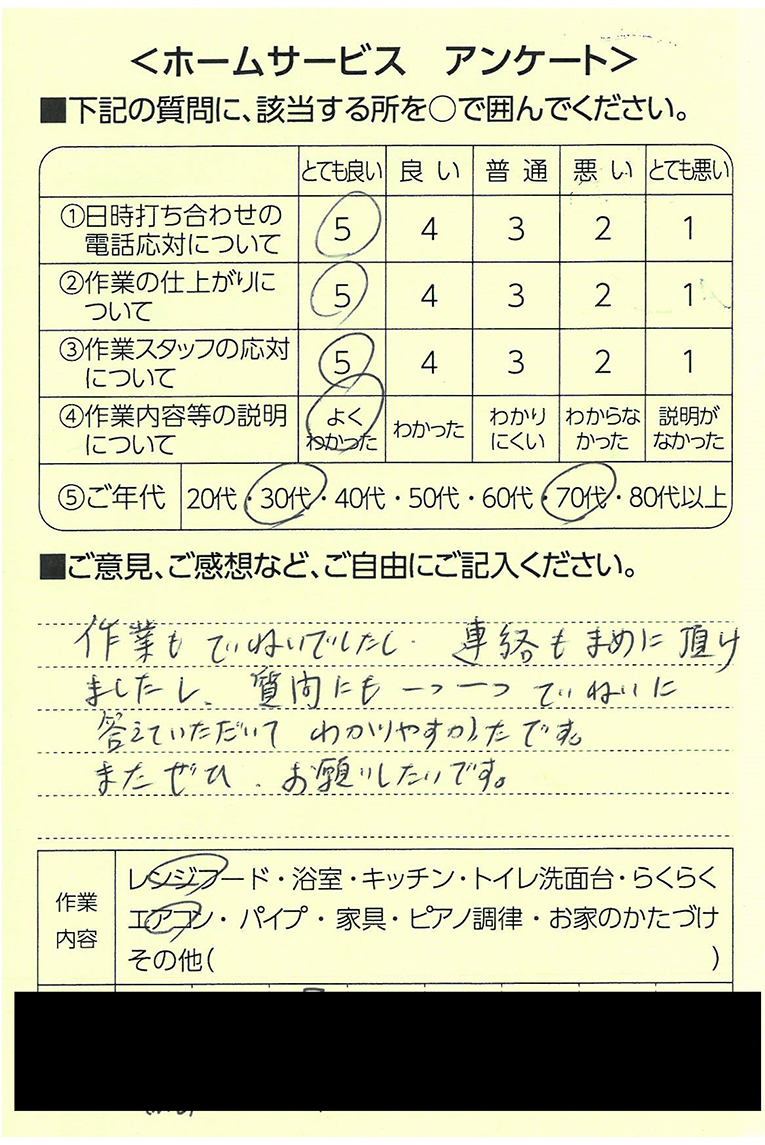 ＜ホームサービス　アンケート＞
■下記の質問に、該当する所を○で囲んでください。
とても良い 良い 普通 悪い とても悪い
①日時打ち合わせの
電話応対について 5 4 3 2 1
②作業の仕上がりに
ついて 5 4 3 2 1
③作業スタッフの応対
について 5 4 3 2 1
④作業内容等の説明
について よく
わかった わかった わかり
にくい わからな
かった 説明が
なかった
⑤ご年代 20代・30代・40代・50代・60代・70代・80代以上
■ご意見、ご感想など、ご自由にご記入ください。
作業も ていねいでしたし、連絡もまめに頂け
ましたし、質問にも 一つ一つ ていねいに
答えていただいて わかりやすかったです。
またぜひ、お願いしたいです。
作業
内容
レンジフード・浴室・キッチン・トイレ洗面台・らくらく
エアコン・パイプ・家具・ピアノ調律・お家のかたづけ
その他(　)